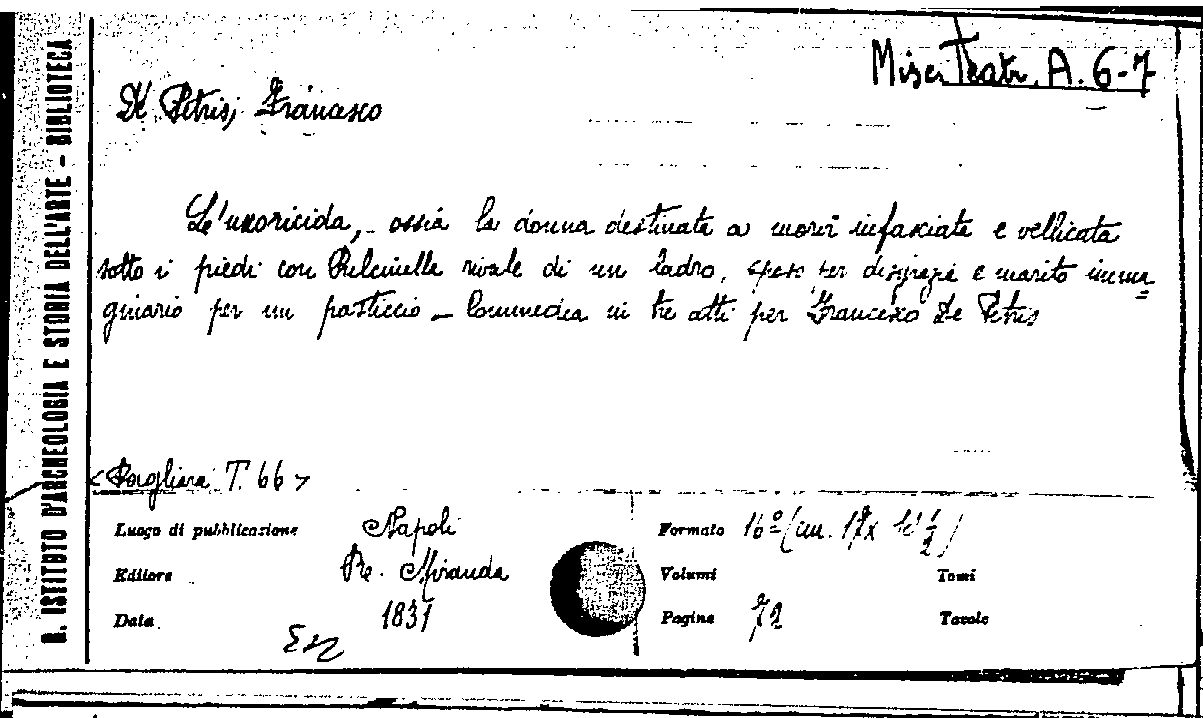 R. ISTITUTO D'ARCHEOLOGIA E STORIA DELL'ARTE - BIBLIOTECA
Miscr Teatr. A. 6-7
De Petris, Francesco
L'uxoricida, ossia la donna destinata a morir infasciata e vellicata
sotto i piedi con Pulcinella rivale di un ladro, sposo per disgrazia e marito imma=
ginario per un pasticcio - Commedia in tre atti per Francesco De Petris
<Pagliara T. 66>
Luogo di pubblicazione Napoli
Editore Re. Miranda
Data 1831
Formato 16º (cm. 17x 10 1/2)
Volumi Tomi
Pagine 72 Tavole